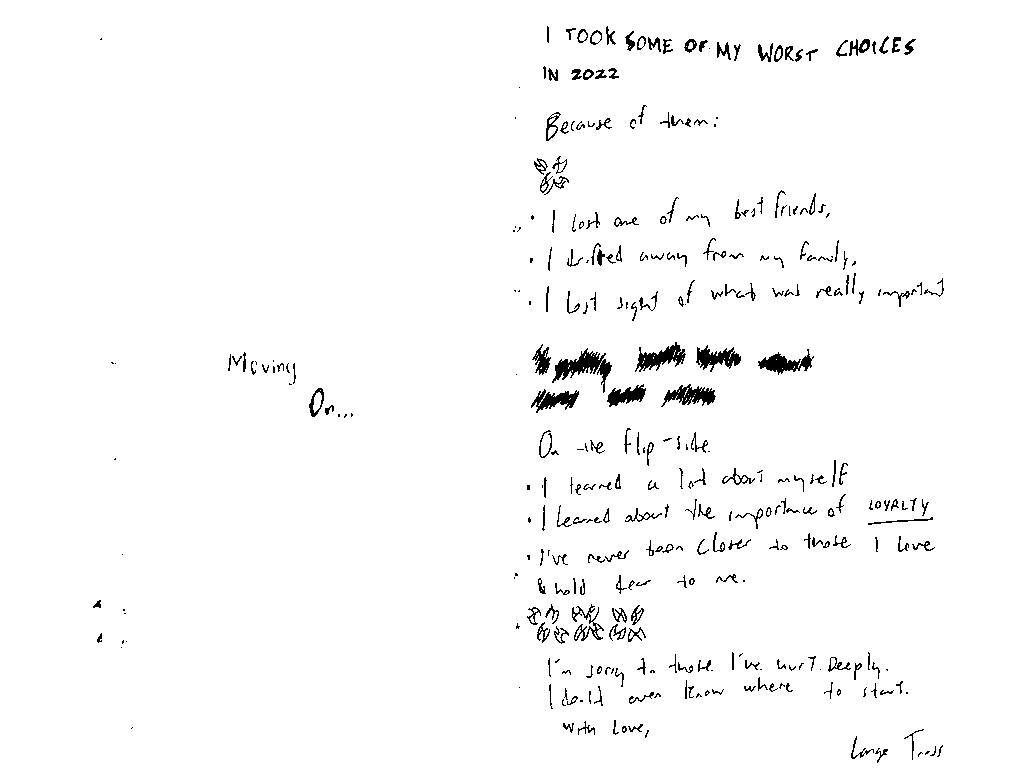 Moving
On...
I TOOK SOME OF MY WORST CHOICES
IN 2022
Because of them:
• I lost one of my best friends,
• I drifted away from my family,
• I lost sight of what was really important
On the flip-side
• I learned a lot about myself
• I learned about the importance of LOYALTY
• I've never been closer to those I love
& hold dear to me.
I'm sorry to those I've hurt. Deeply.
I don't even know where to start.
With love,